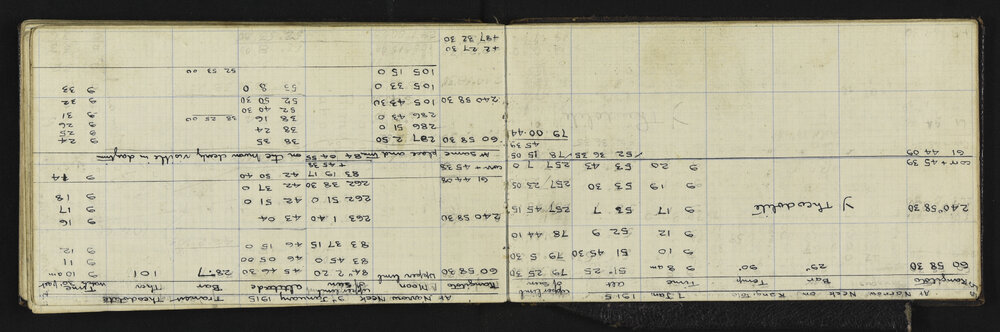 At Narrow Neck on Kangtolo 7 Jan 1915 upper limb of sun
Kangtolo Bar Temp Time alt
60 58 30 29" 90° 9 8 am 51° 25 79 25 30
9 10 51 45 30 79 5 30
9 12 52 9 78 44 10
240° 58 30 Y Theodolite 9 17 53 7 257 45 15
9 19 53 30 257 23 05
corr + 45 39 9 20 53 43 257 7 0
61 44 09 52 36 35 / 78 15 05
45 39
79 00 44
At Narrow Neck 3rd January 1915 Transit Theodolite
Kangtolo Moon Upper limb upper limb of sun altitude Bar Ther Time
60 58 30 84° 2 20 45 36 30 28".7 101 9 10 am
83 45 0 46 05 00 9 11
83 37 15 46 15 0 9 12
240 58 30 263 1.40 43 04 9 16
262 51 0 42 51 0 9 17
61 44 08 262 38 30 42 37 0 9 18
corr + 45 38 83 19 17 42 50 40 9 14
+ 45 38
At same place and time 84 04 55 on the moon clearly visible in daytime
60 58 30 287 2.50 38 35 9 24
286 51 0 38 24 9 25
286 43 0 38 16 38 25 00 9 26
52 40 30 9 31
240 58 30 105 43 30 52 50 30 9 32
105 33 0 53 8 0 9 33
105 15 0 52 53 00
+2 27 30
+27 32 30